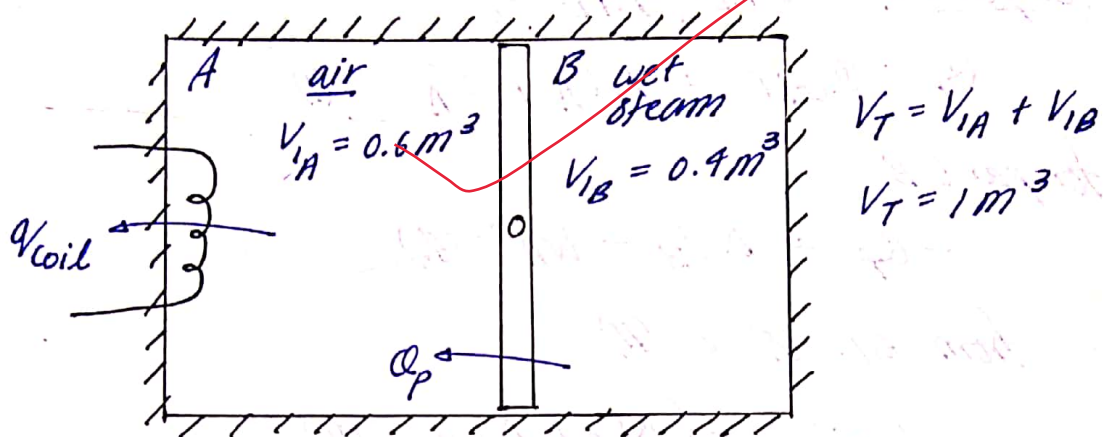 A air
V₁A = 0.6 m³
B wet
steam
V₁B = 0.4 m³
VT = V₁A + V₁B
VT = 1 m³
qcoil
Qp